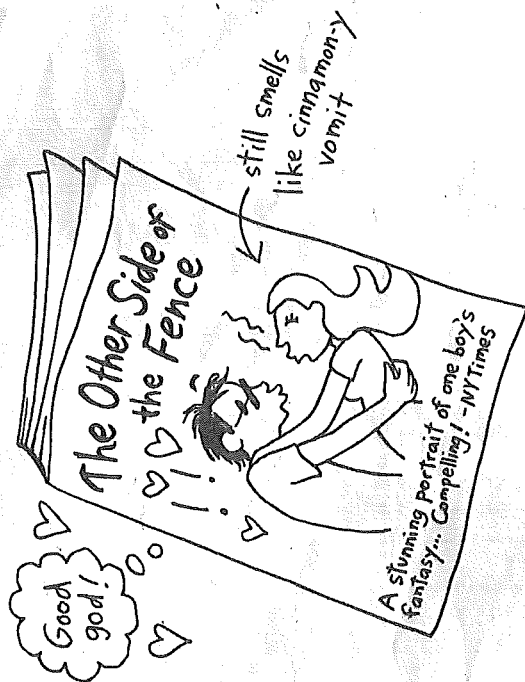 Good
god!
The Other Side of
the Fence
still smells
like cinnamon-y
vomit
A stunning portrait of one boy's
fantasy... Compelling! -NYTimes